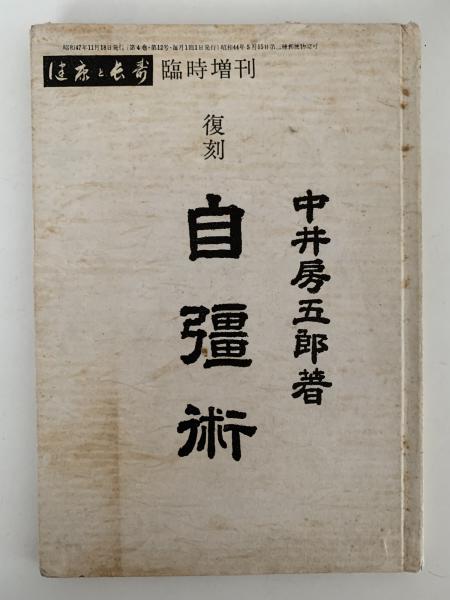 昭和47年11月18日発行(第4巻・第12号・毎月1回1日発行)昭和44年5月15日第三種郵便物認可
健康と長寿 臨時増刊
復刻
自彊術
中井房五郎著